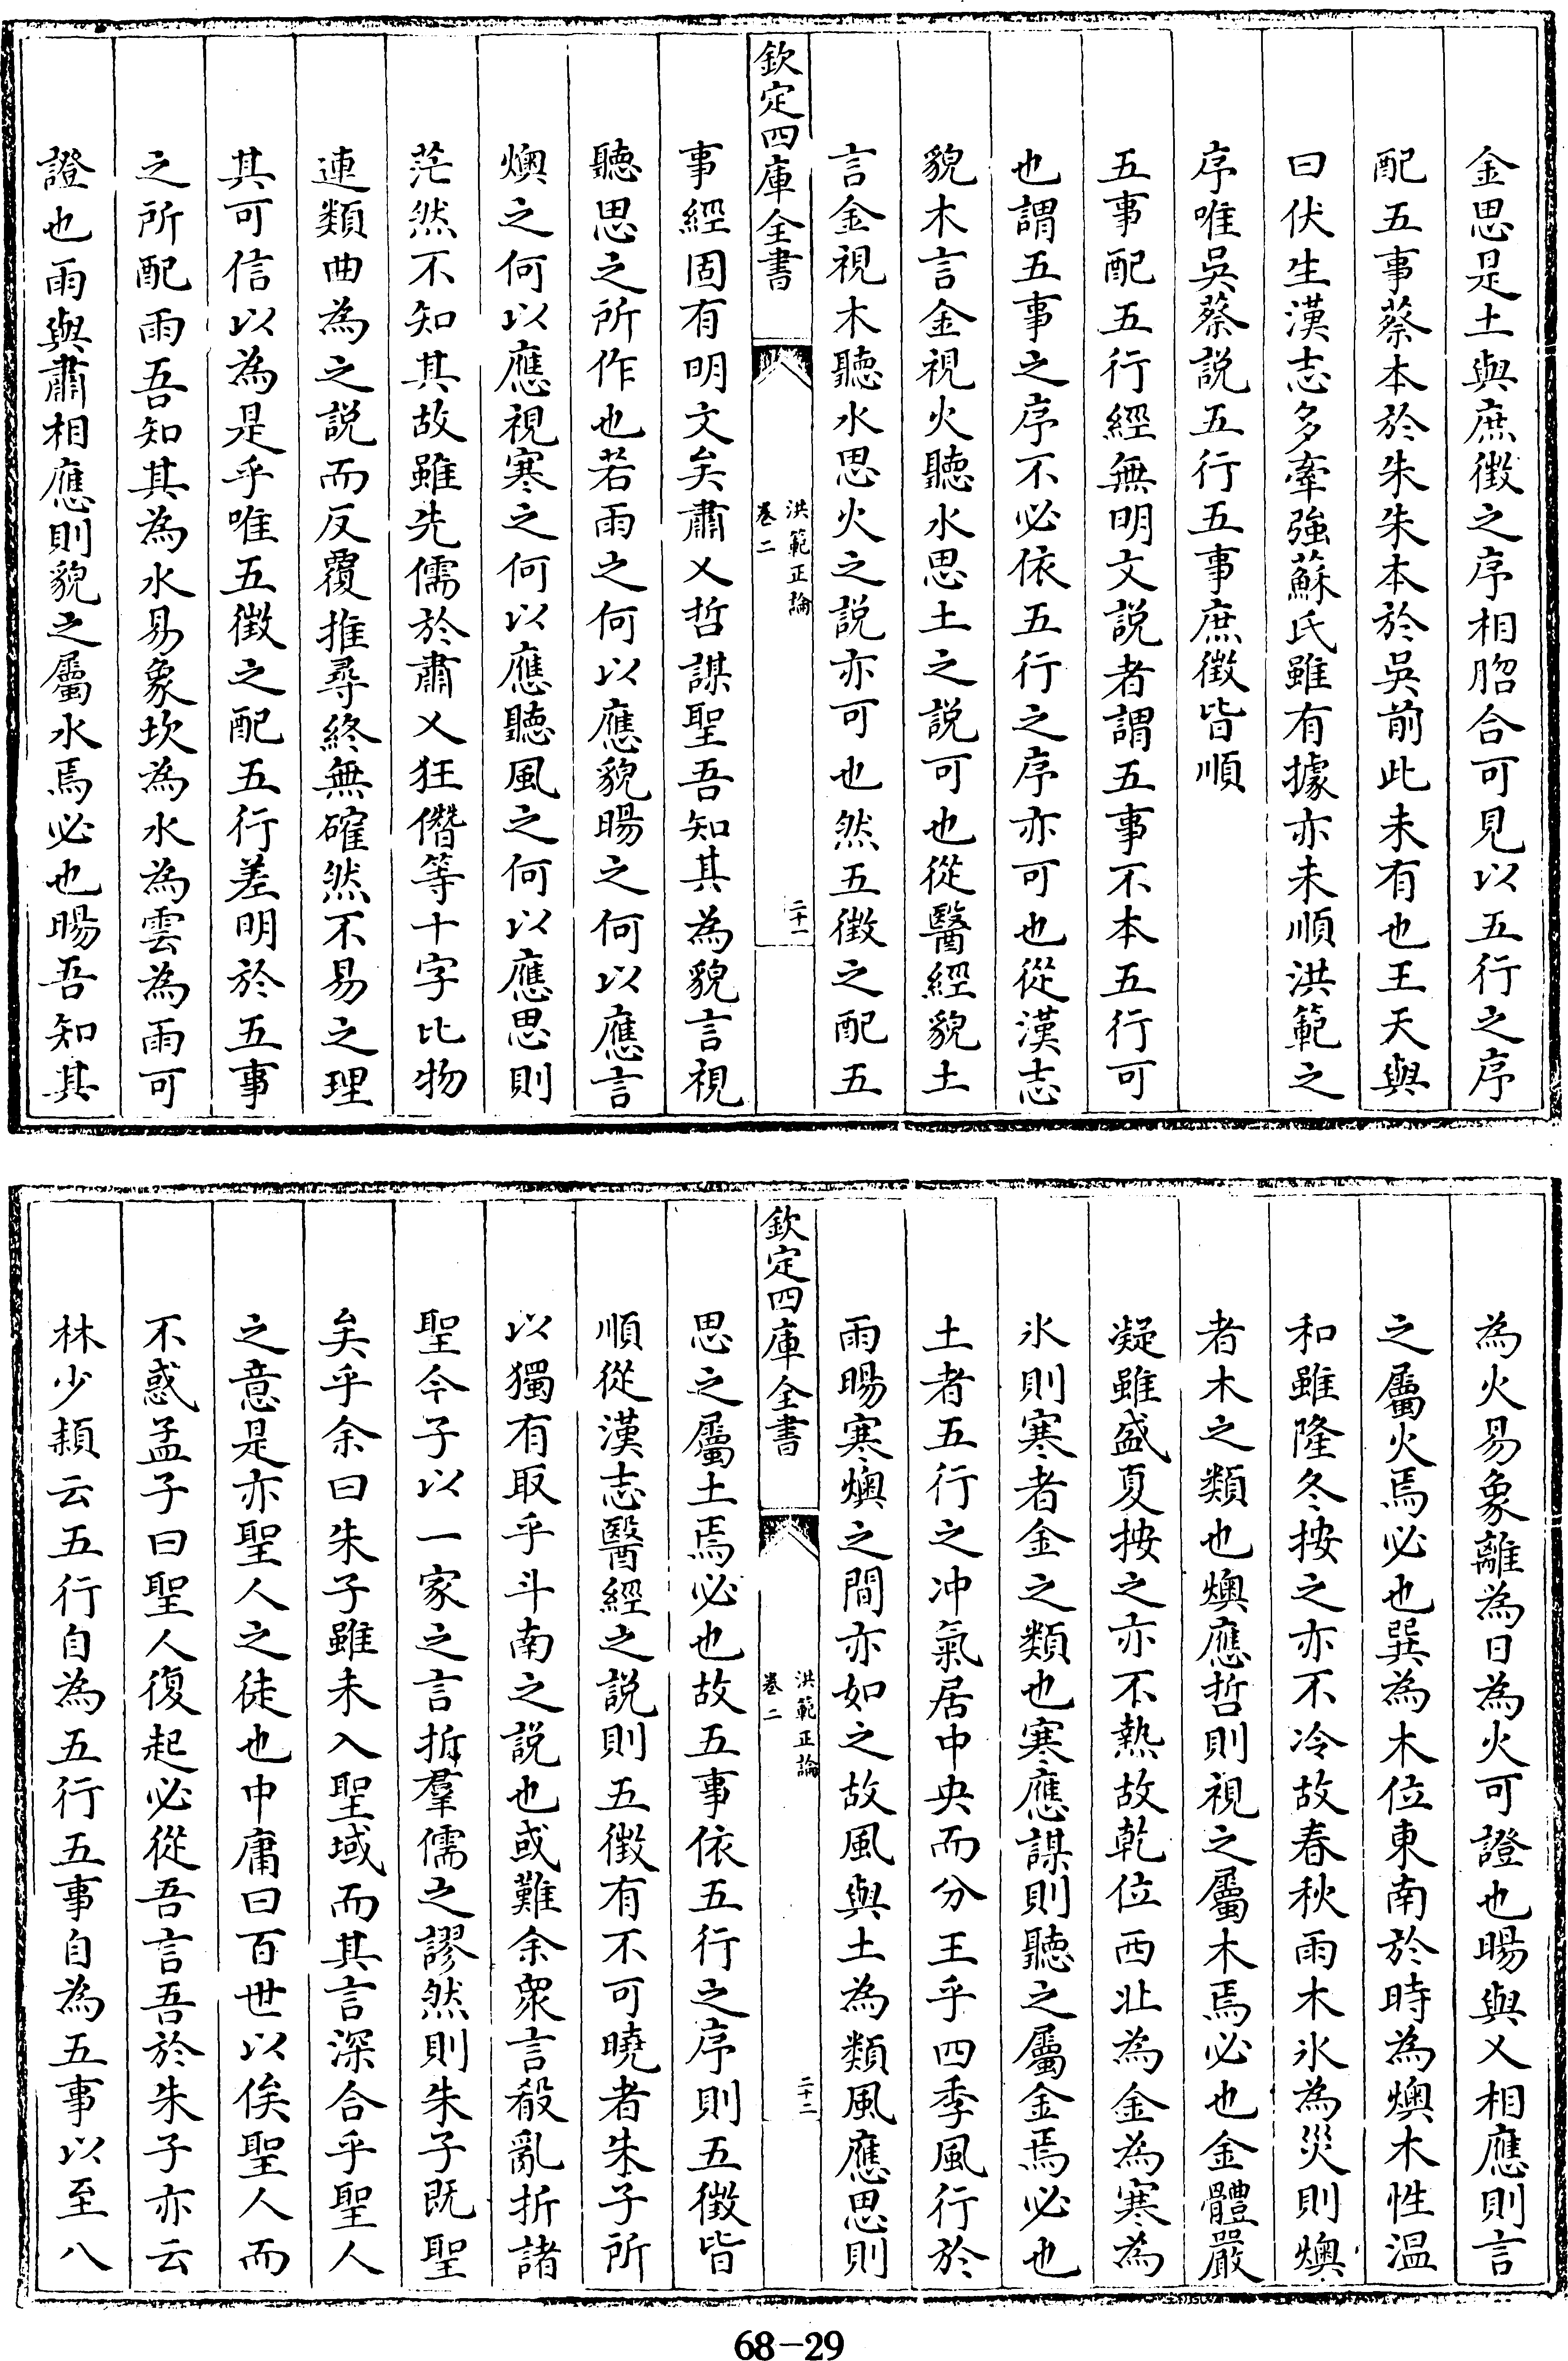 金思是土與庶徴之序相脗合可見以五行之序
配五事蔡本於朱朱本於吳前此未有也王天與
曰伏生漢志多牽強蘇氏雖有據亦未順洪範之
序唯吳蔡説五行五事庶徴皆順
五事配五行經無明文説者謂五事不本五行可
也謂五事之序不必依五行之序亦可也從漢志
貌木言金視火聽水思土之説可也從醫經貌土
言金視木聽水思火之説亦可也然五徴之配五
欽定四庫全書
洪範正論
卷二
二十一
事經固有明文矣肅乂哲謀聖吾知其為貌言視
聽思之所作也若雨之何以應貌暘之何以應言
燠之何以應視寒之何以應聽風之何以應思則
茫然不知其故雖先儒於肅乂狂僭等十字比物
連類曲為之説而反覆推尋終無確然不易之理
其可信以為是乎唯五徴之配五行差明於五事
之所配雨吾知其為水易象坎為水為雲為雨可
證也雨與肅相應則貌之屬水焉必也暘吾知其
為火易象離為日為火可證也暘與乂相應則言
之屬火焉必也巽為木位東南於時為燠木性溫
和雖隆冬按之亦不冷故春秋雨木氷為災則燠
者木之類也燠應哲則視之屬木焉必也金體嚴
凝雖盛夏按之亦不熱故乾位西北為金為寒為
氷則寒者金之類也寒應謀則聽之屬金焉必也
土者五行之冲氣居中央而分王乎四季風行於
雨暘寒燠之間亦如之故風與土為類風應思則
欽定四庫全書
洪範正論
卷二
二十二
思之屬土焉必也故五事依五行之序則五徴皆
順從漢志醫經之説則五徴有不可曉者朱子所
以獨有取乎斗南之説也或難余衆言殽亂折諸
聖今子以一家之言折羣儒之謬然則朱子既聖
矣乎余曰朱子雖未入聖域而其言深合乎聖人
之意是亦聖人之徒也中庸曰百世以俟聖人而
不惑孟子曰聖人復起必從吾言吾於朱子亦云
林少穎云五行自為五行五事自為五事以至八
68-29